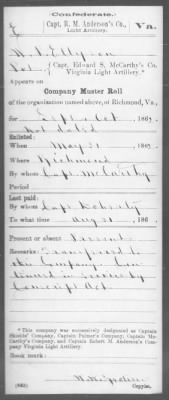 Confederate.
E | Capt. R. M. Anderson's Co., Light Artillery. | Va.
Capt. Edward S. McCarthy's Co.
Virginia Light Artillery.*
Appears on
Company Muster Roll
of the organization named above, of Richmond, Va.,
for Sept & Oct, 186
Not dated
Enlisted:
When May 21, 186
Where Richmond
By whom Capt. McCarthy
Period
Last paid:
By whom Capt.
To what time Aug 31, 186
Present or absent Present
Remarks: Transferred to
this Company
by
Conscript Act.
*This company was successively designated as Captain
Shields' Company, Captain Palmer's Company, Captain Mc-
Carthy's Company, and Captain Robert M. Anderson's Com-
pany Virginia Light Artillery.
Book mark:
Copyist.